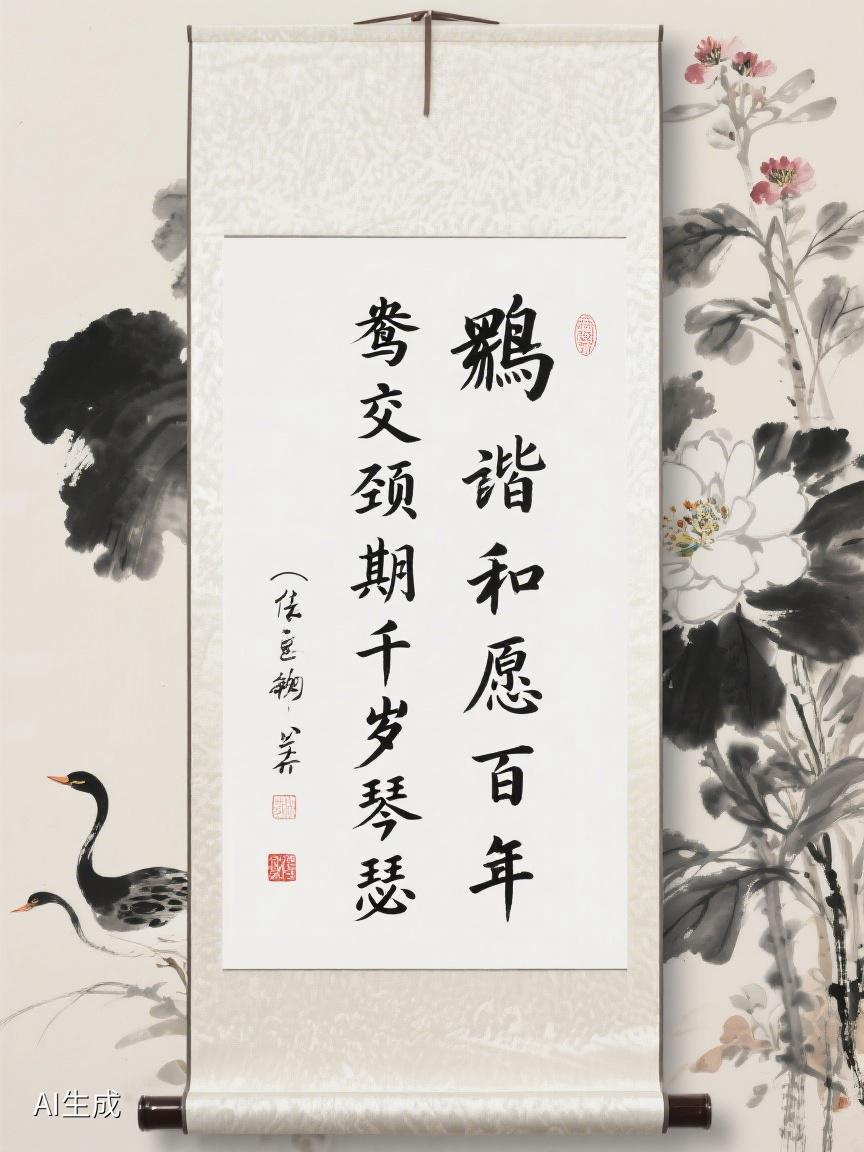 谐和愿百年
鸯交颈期千岁琴瑟
AI生成